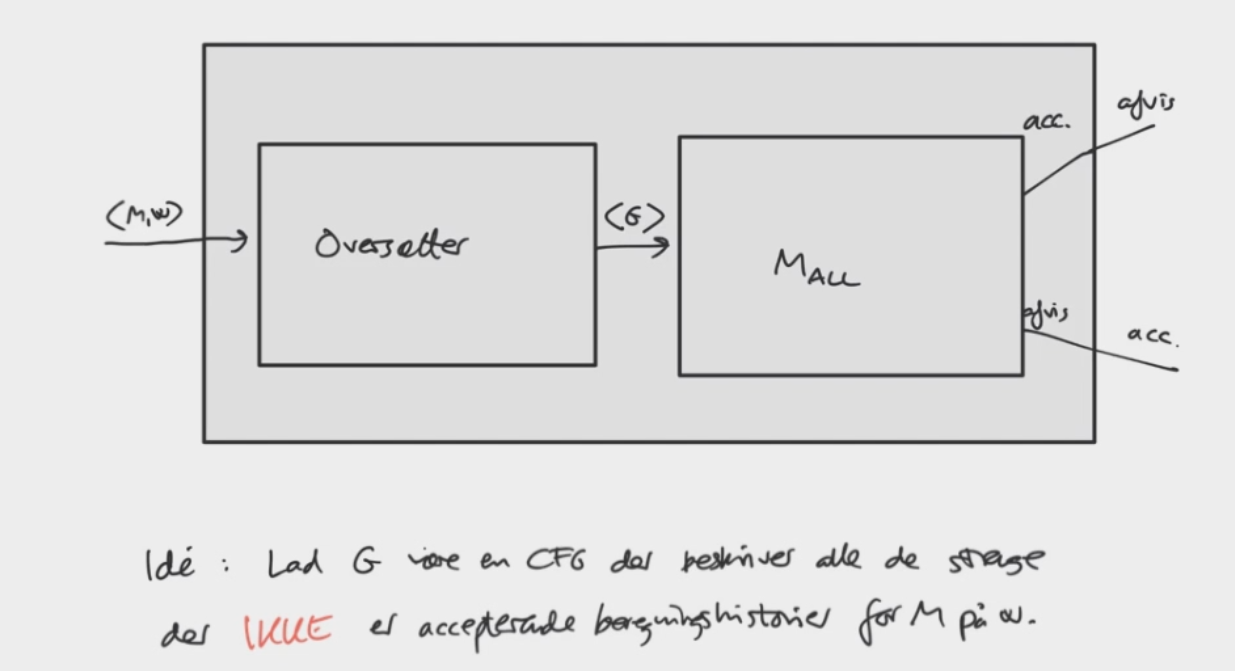 acc.
afvis
⟨M,w⟩
⟨G⟩
Oversætter
M_ALL
afvis
acc.
Idé : Lad G være en CFG der beskriver alle de strenge
der IKKE er accepterende beregningshistorier for M på w.